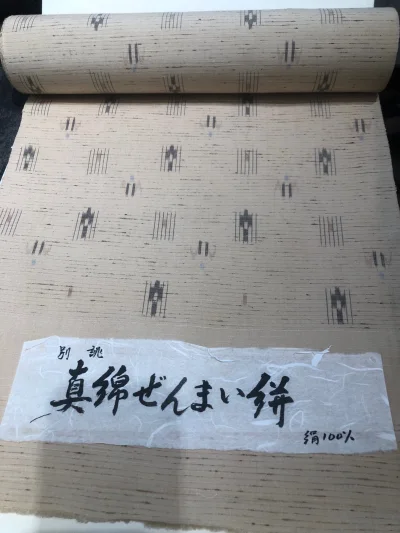 別誂
真綿ぜんまい絣
絹100%